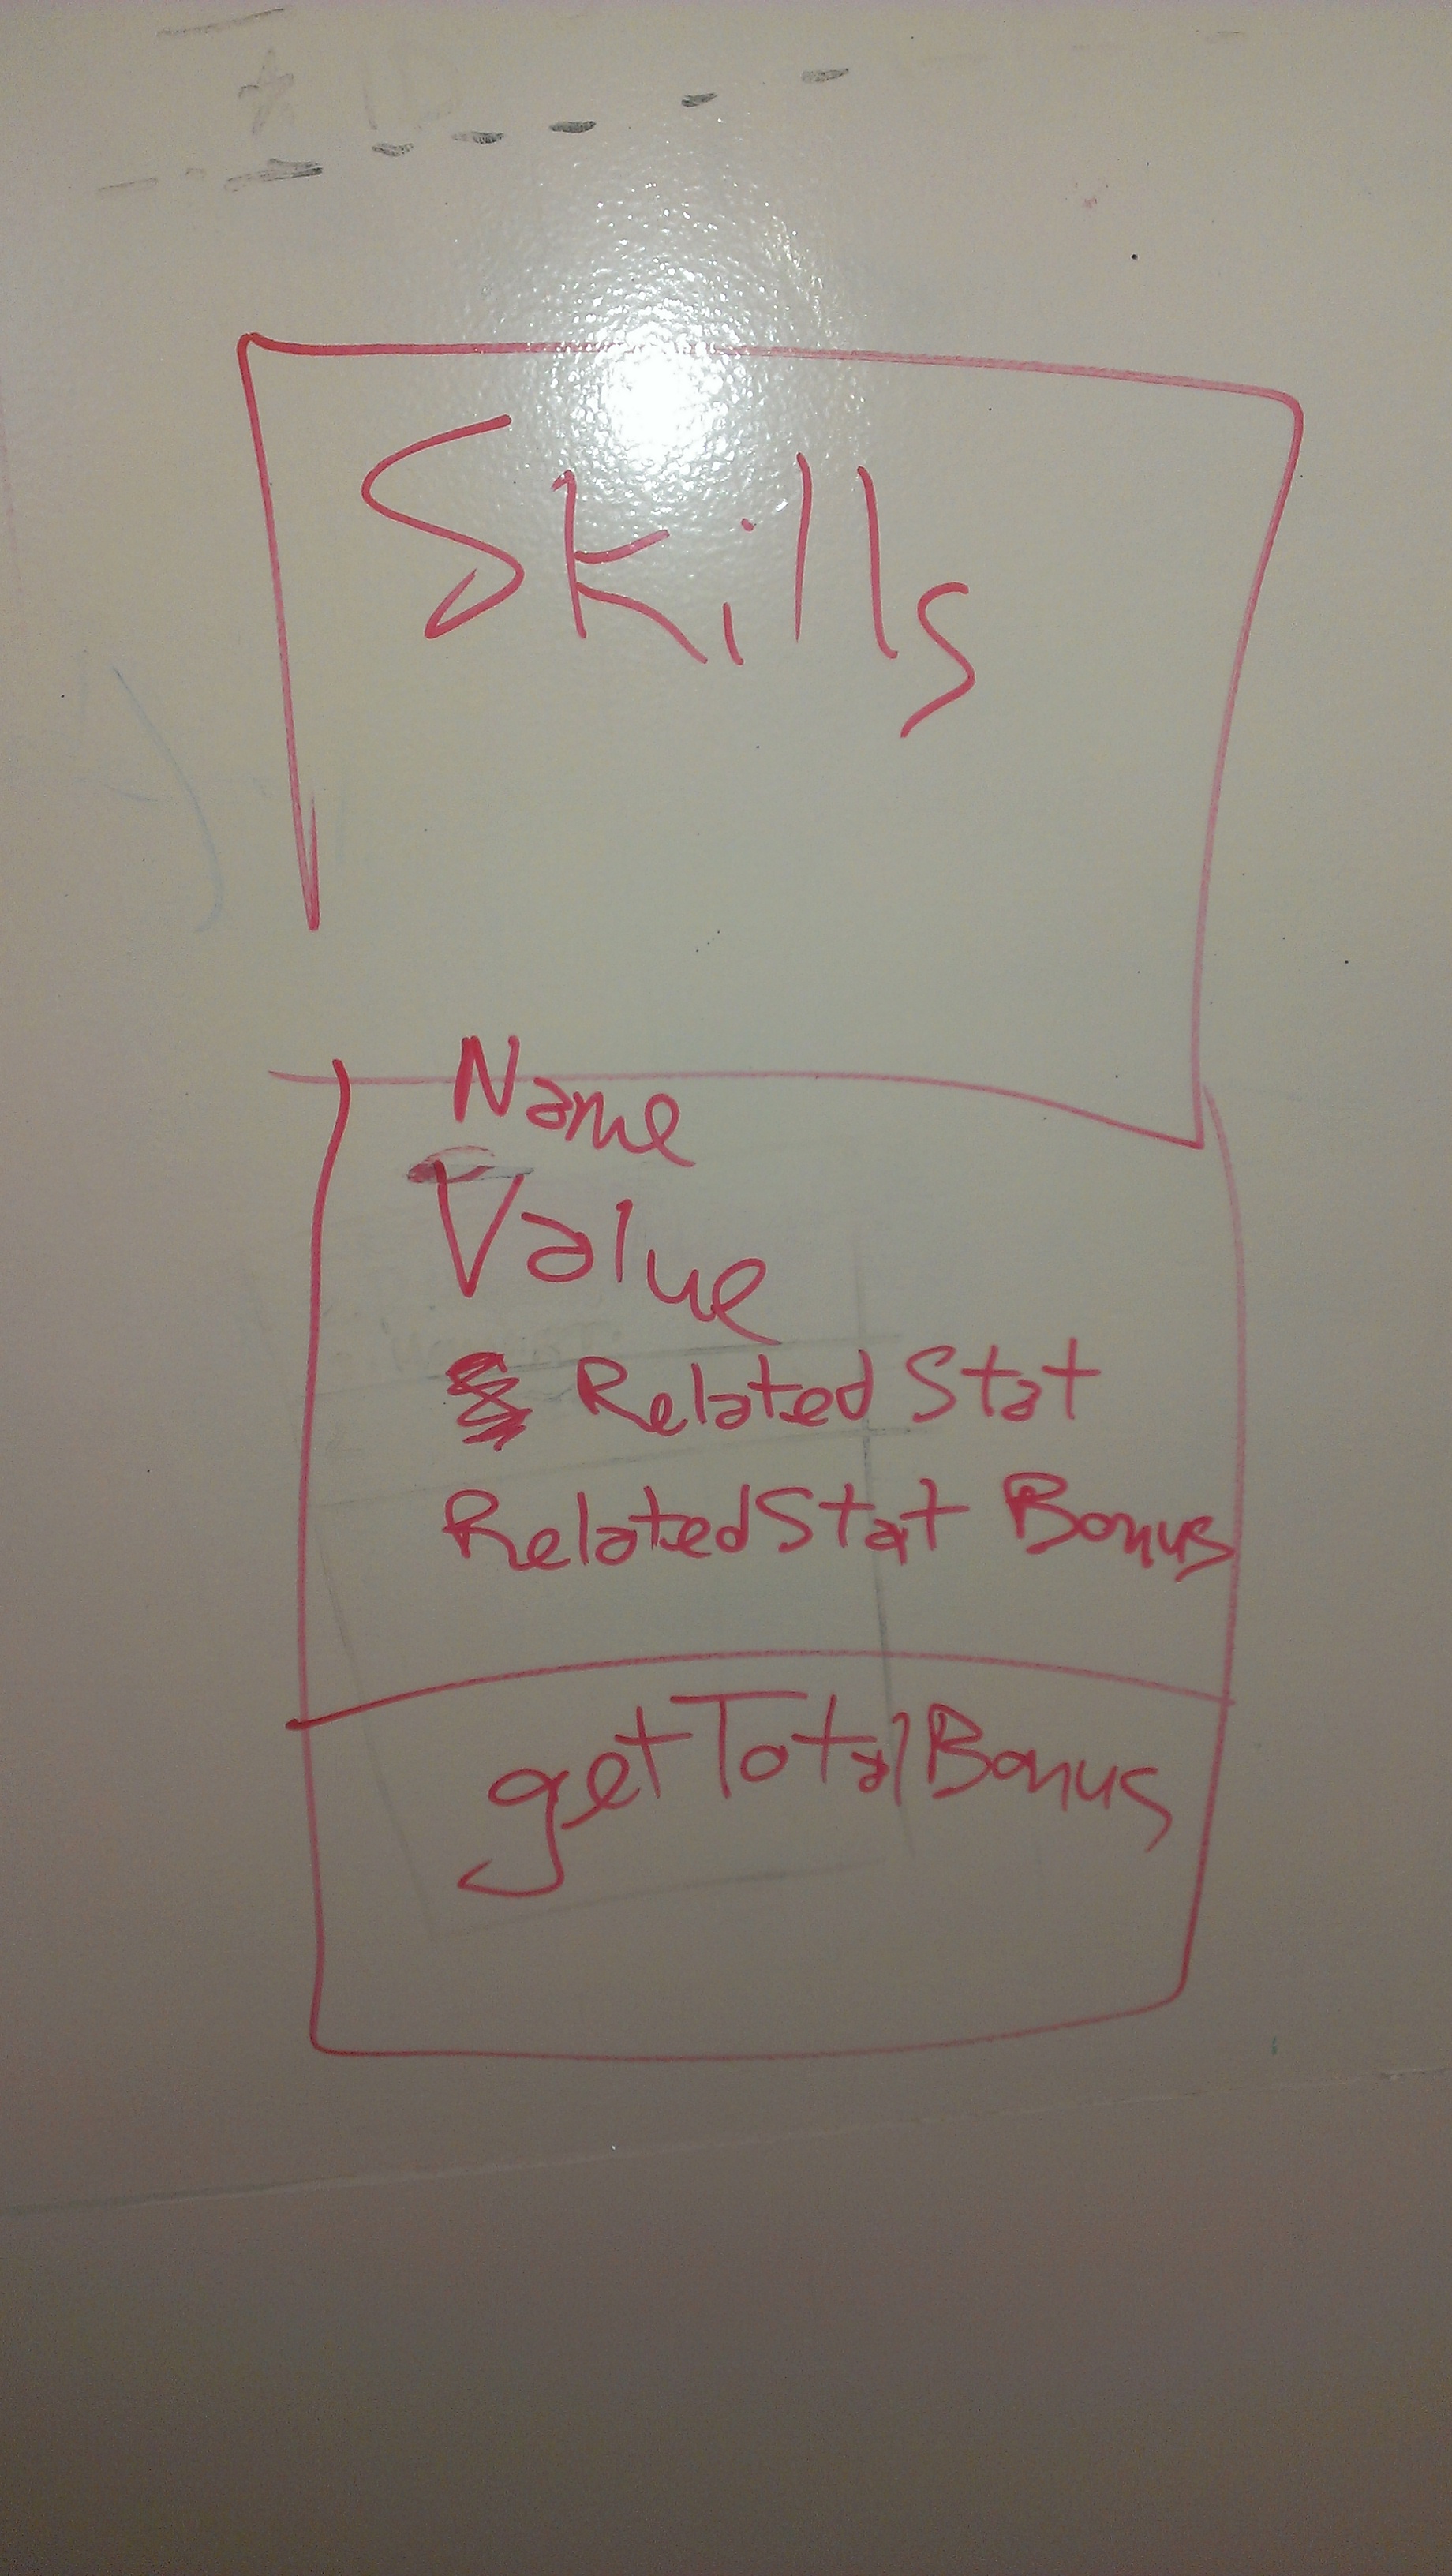 Skills
Name
Value
Related Stat
RelatedStat Bonus
getTotalBonus